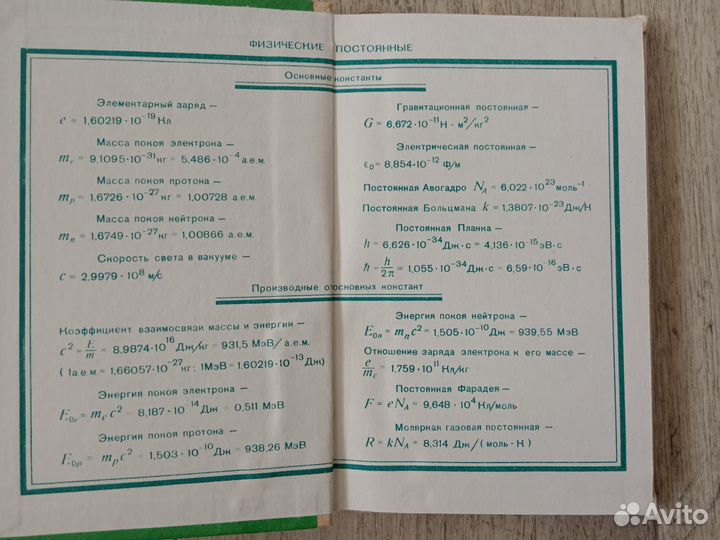 ФИЗИЧЕСКИЕ ПОСТОЯННЫЕ
Основные константы
Элементарный заряд —
e = 1,60219·10⁻¹⁹ Кл
Масса покоя электрона —
mₑ = 9,1095·10⁻³¹ кг = 5,486·10⁻⁴ а.е.м.
Масса покоя протона —
mₚ = 1,6726·10⁻²⁷ кг = 1,00728 а.е.м.
Масса покоя нейтрона —
mₙ = 1,6749·10⁻²⁷ кг = 1,00866 а.е.м.
Скорость света в вакууме —
c = 2,9979·10⁸ м/с
Гравитационная постоянная —
G = 6,672·10⁻¹¹ Н·м²/кг²
Электрическая постоянная —
ε₀ = 8,854·10⁻¹² Ф/м
Постоянная Авогадро N_A = 6,022·10²³ моль⁻¹
Постоянная Больцмана k = 1,3807·10⁻²³ Дж/Н
Постоянная Планка —
h = 6,626·10⁻³⁴ Дж·с = 4,136·10⁻¹⁵ эВ·с
ħ = h/2π = 1,055·10⁻³⁴ Дж·с = 6,59·10⁻¹⁶ эВ·с
Производные от основных констант
Коэффициент взаимосвязи массы и энергии —
c² = E/m = 8,9874·10¹⁶ Дж/кг = 931,5 МэВ/а.е.м.
(1а.е.м. = 1,66057·10⁻²⁷ кг; 1МэВ = 1,60219·10⁻¹³ Дж)
Энергия покоя электрона —
E₀ₑ = mₑc² = 8,187·10⁻¹⁴ Дж = 0,511 МэВ
Энергия покоя протона —
E₀ₚ = mₚc² = 1,503·10⁻¹⁰ Дж = 938,26 МэВ
Энергия покоя нейтрона —
E₀ₙ = mₙc² = 1,505·10⁻¹⁰ Дж = 939,55 МэВ
Отношение заряда электрона к его массе —
e/mₑ = 1,759·10¹¹ Кл/кг
Постоянная Фарадея —
F = eN_A = 9,648·10⁴ Кл/моль
Молярная газовая постоянная —
R = kN_A = 8,314 Дж/(моль·Н)
Avito